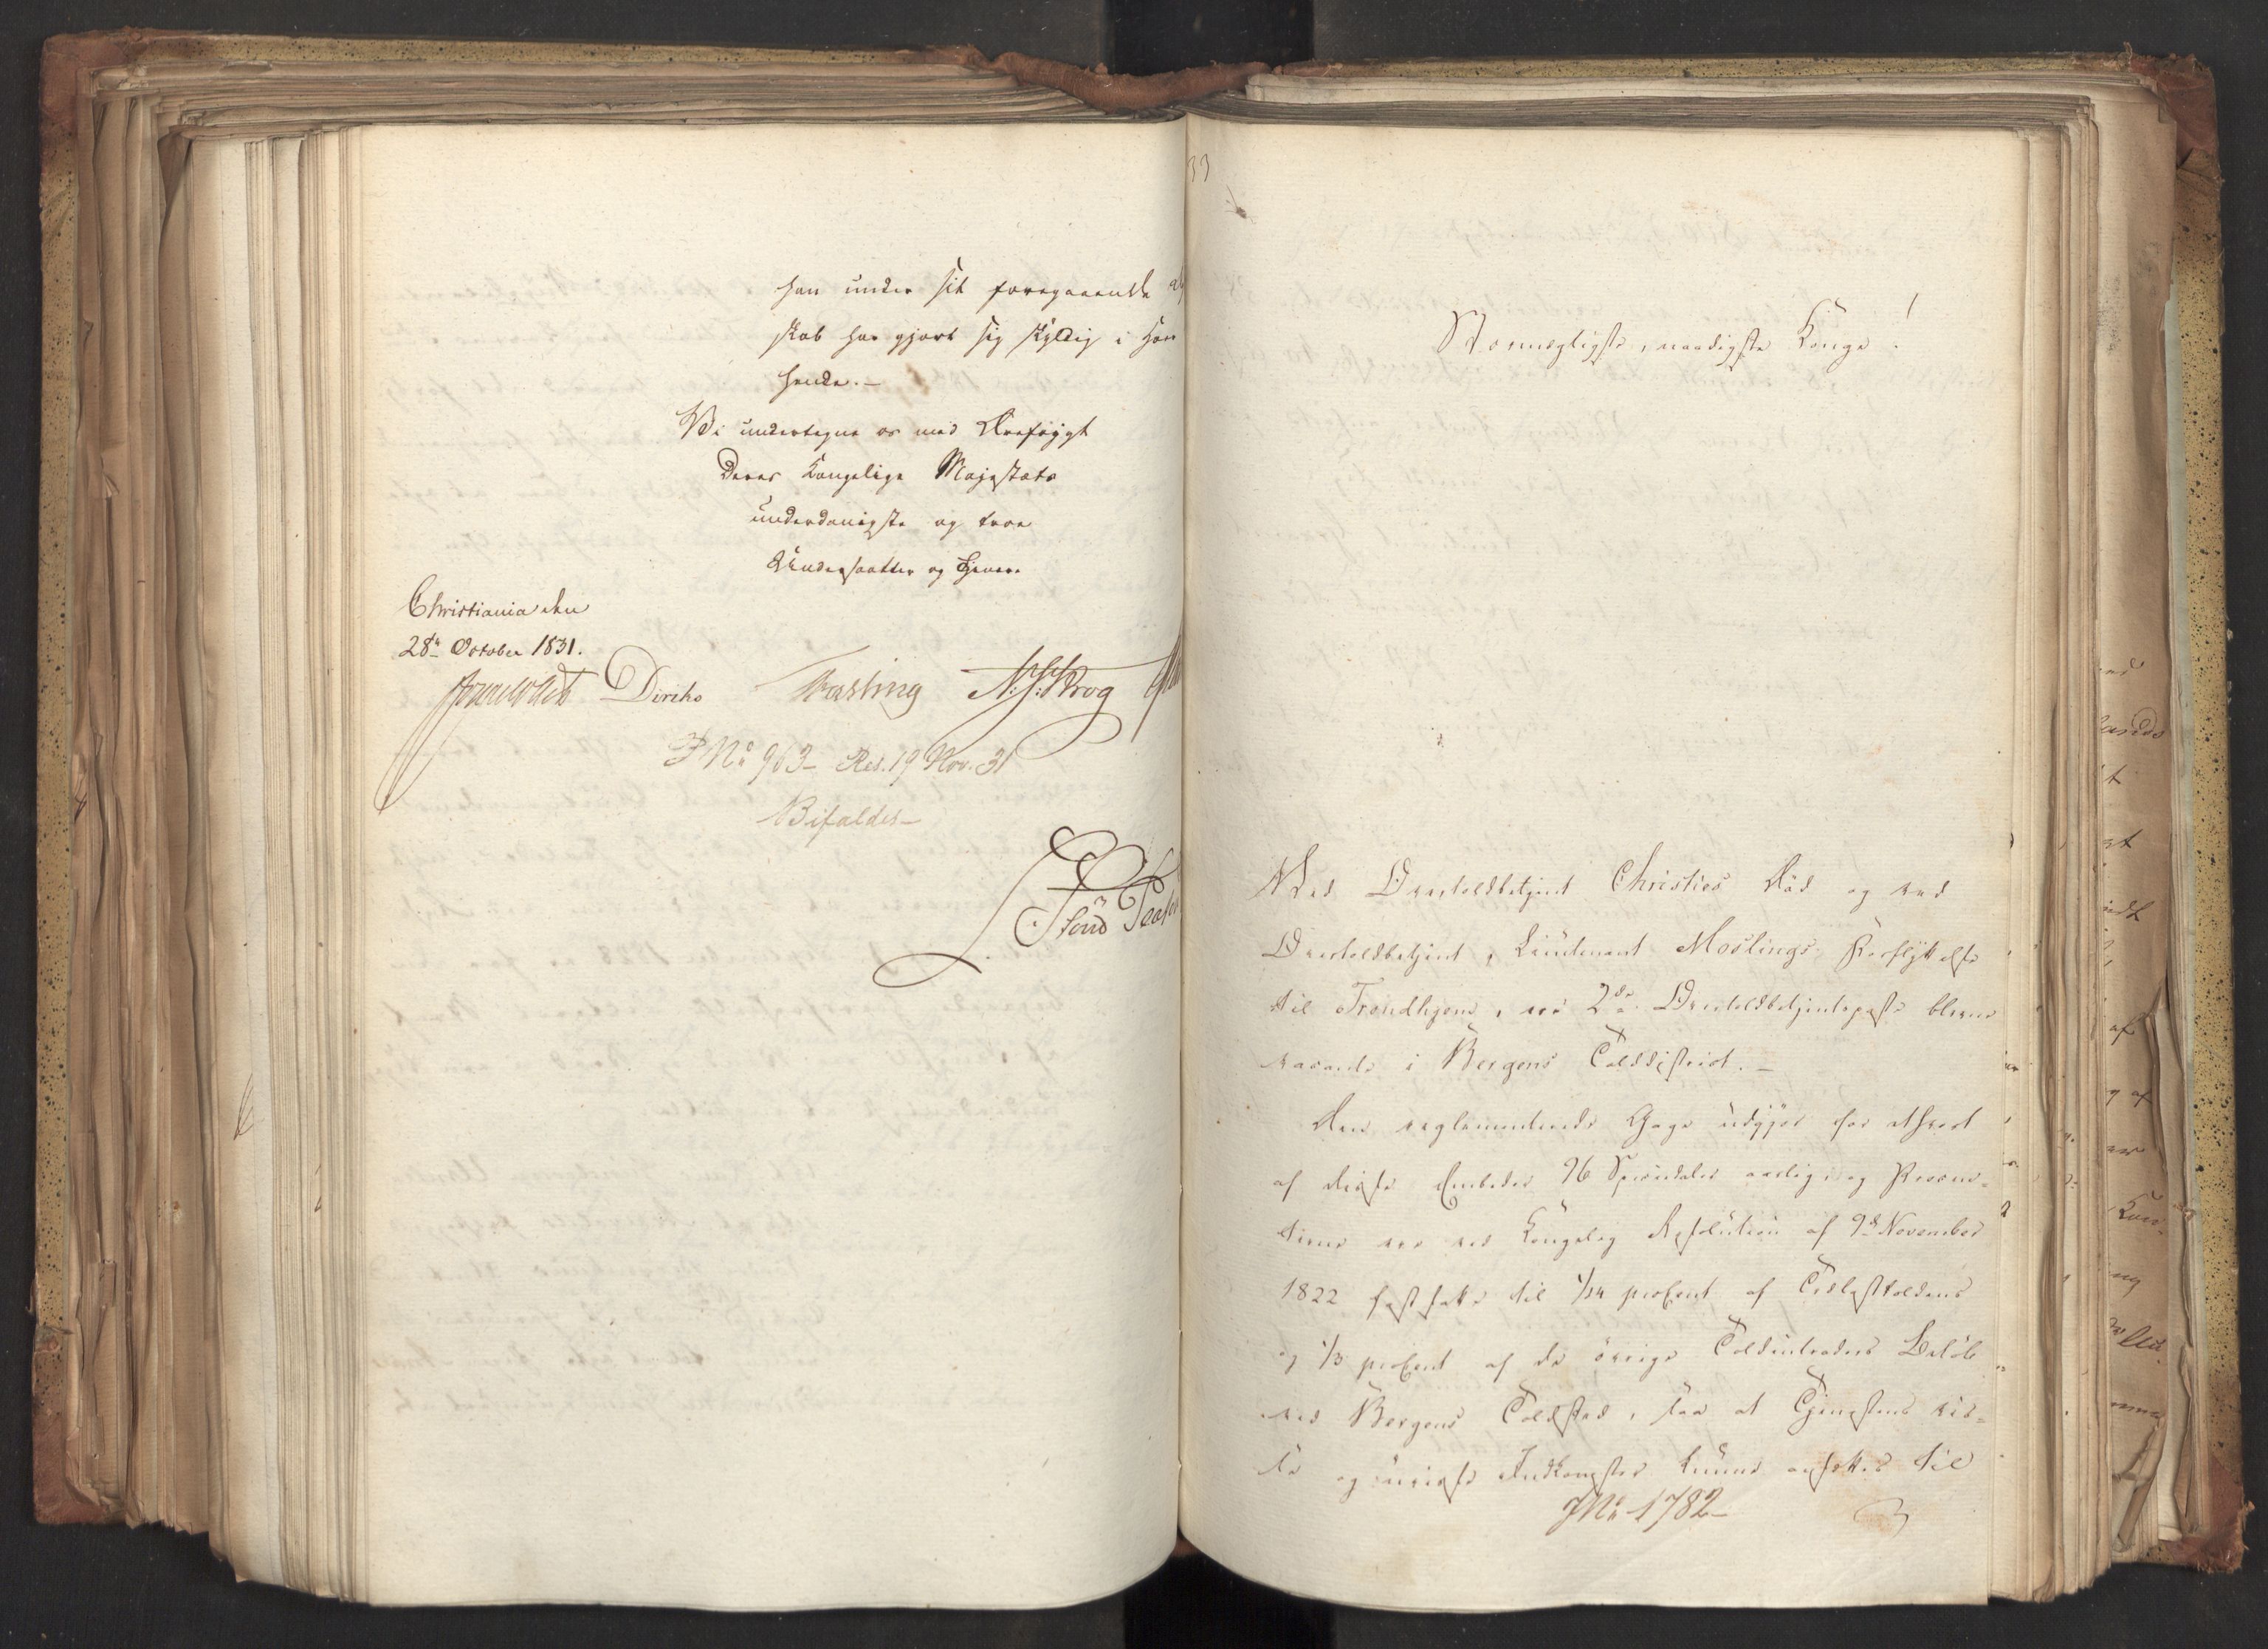 han under sit foregaaende
skab har gjort sig skyldig i Hor
hende.-
Vi undertegne os med Ærefrygt
Deres Kongelige Majestæts
underdanigste og troe
Undersaatter og Tjenere
Christiania den
28de October 1831.
Diriks Fasting N.J.Krog
J No 963- Res. 19 Nov. 31
Bifaldes-
33
Stormægtigste, naadigste Konge!
Ved Overtoldbetjent Christies Død og ved
Overtoldbetjent, Lieutenant Moslings Forflyttelse
til Trondhjem, ere 2de Overtoldbetjentposte blevne
vacante i Bergens Tolddistrict.-
Den reglementerede Gage udgjør for ethvert
af disse Embeder 96 Speciedaler aarlig, og Procen-
terne ere ved Kongelig Resolution af 9de November
1822 fastsatte til 1/14 proCent af Tiølasttoldens
og 1/3 proCent af de øvrige Toldintraders Beløb
ved Bergens Toldsted, saa at Tjenestens vis-
se og uvisse Indkomster kunne ansættes til
JNo 1782-